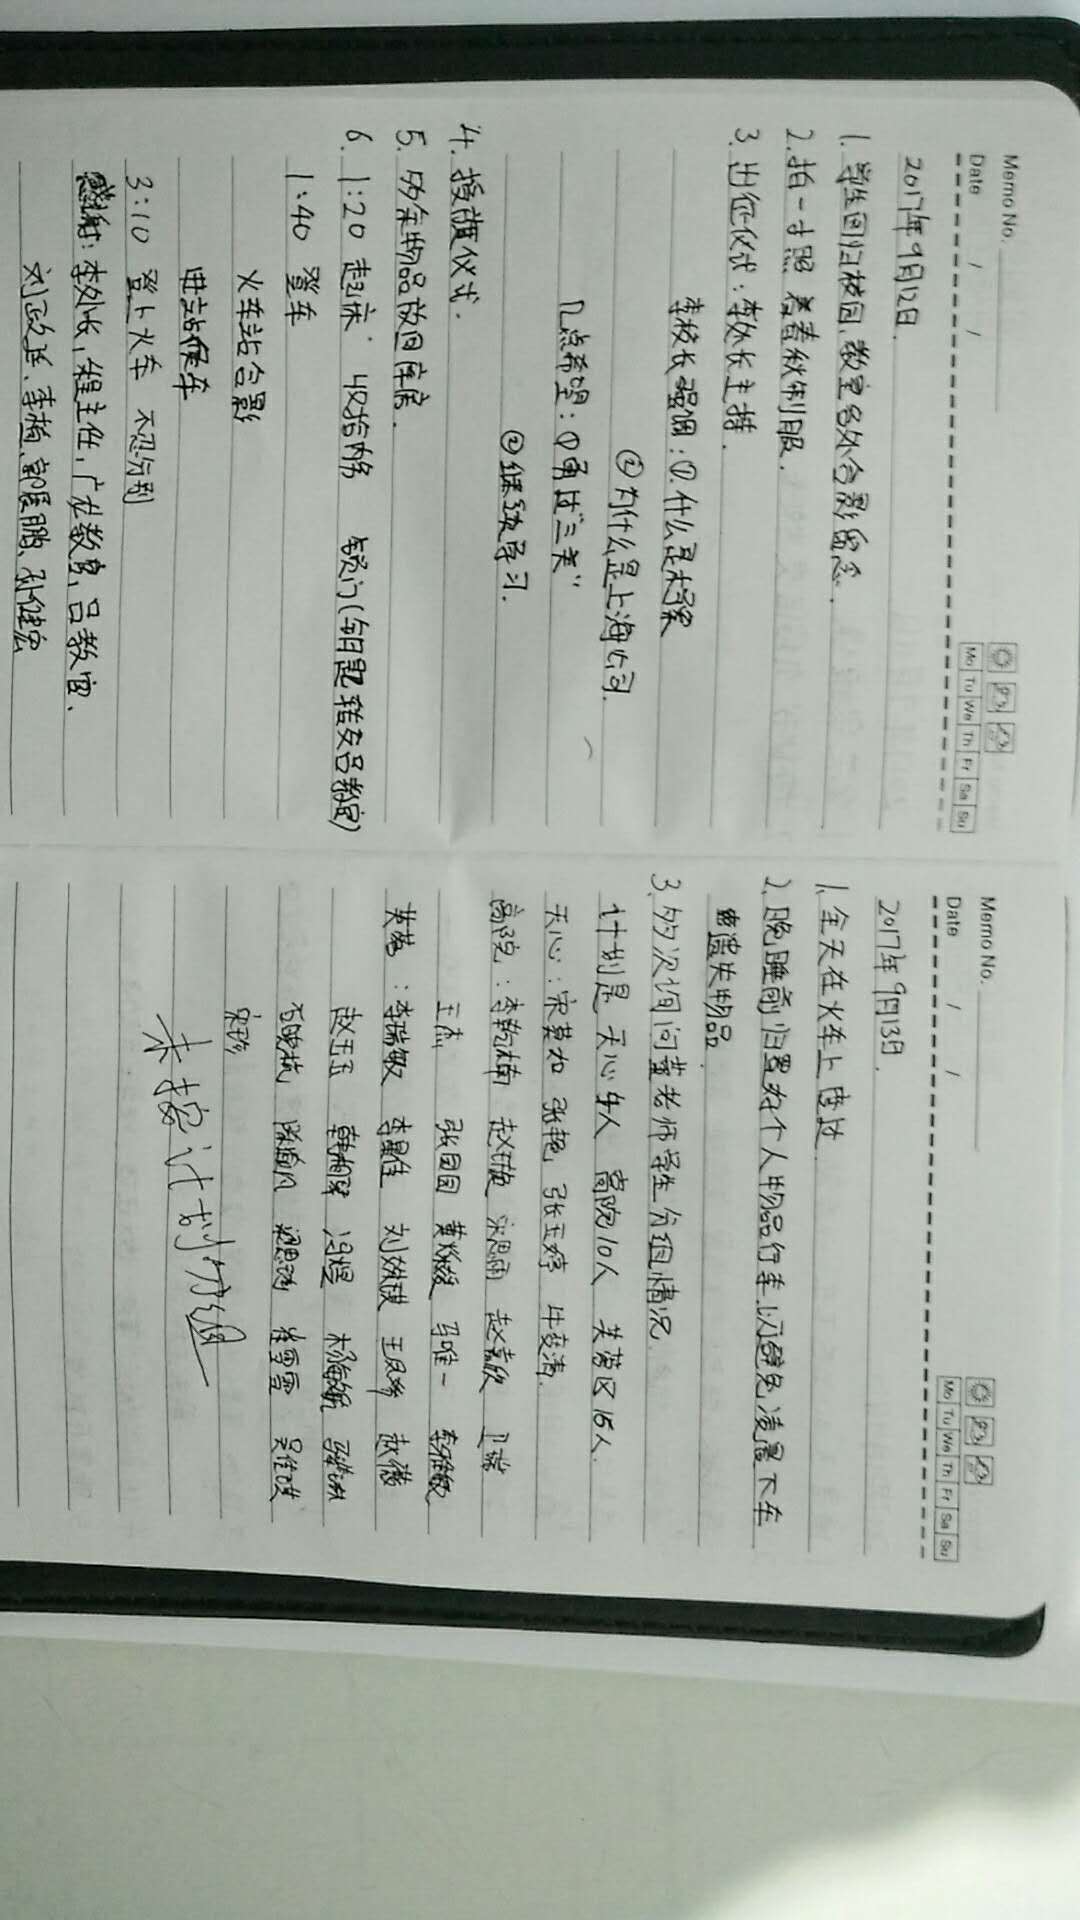 Memo No.
Date / /
Mo Tu We Th Fr Sa Su
2017年9月12日.
1. 学生回归校园, 教室名外合影留念.
2. 拍一寸照 着春秋制服.
3. 出征仪式: 李处长主持.
李校长强调: ①.什么是光荣
②为什么是上海公司.
几点希望: ①勇过"三关"
②继续学习.
4. 授旗仪式.
5. 多余物品放回库房.
6. 1:20 起床. 收拾内务 锁门(钥匙转交吕教官)
1:40 登车
火车站合影
进站候车
3:10 登上火车 不忍分别
感谢: 李处长, 程主任, 广龙教官, 吕教官、
刘政廷、李楠、郭展鹏、孙健宏
Memo No.
Date / /
Mo Tu We Th Fr Sa Su
2017年9月13日.
1. 全天在火车上度过.
2. 晚睡前归置好个人物品行李, 以避免凌晨下车
遗失物品.
3. 多次询问董老师学生分组情况.
计划是 天心4人 高院10人 芙蓉区16人.
天心: 宋莫加 张艳 张玉婷 牛姿清.
高院: 李乾楠 赵祺 宋思雨 赵嘉欣
王杰 张团团 黄 马唯一 李雅敏
芙蓉: 李瑞敏 李星佳 刘 王凤 赵薇
赵玉玉 韩 冯煜 杨海媛
石晓杭 陈 梁思 崔雪雪 吴佳
宋珍
未按计划分组